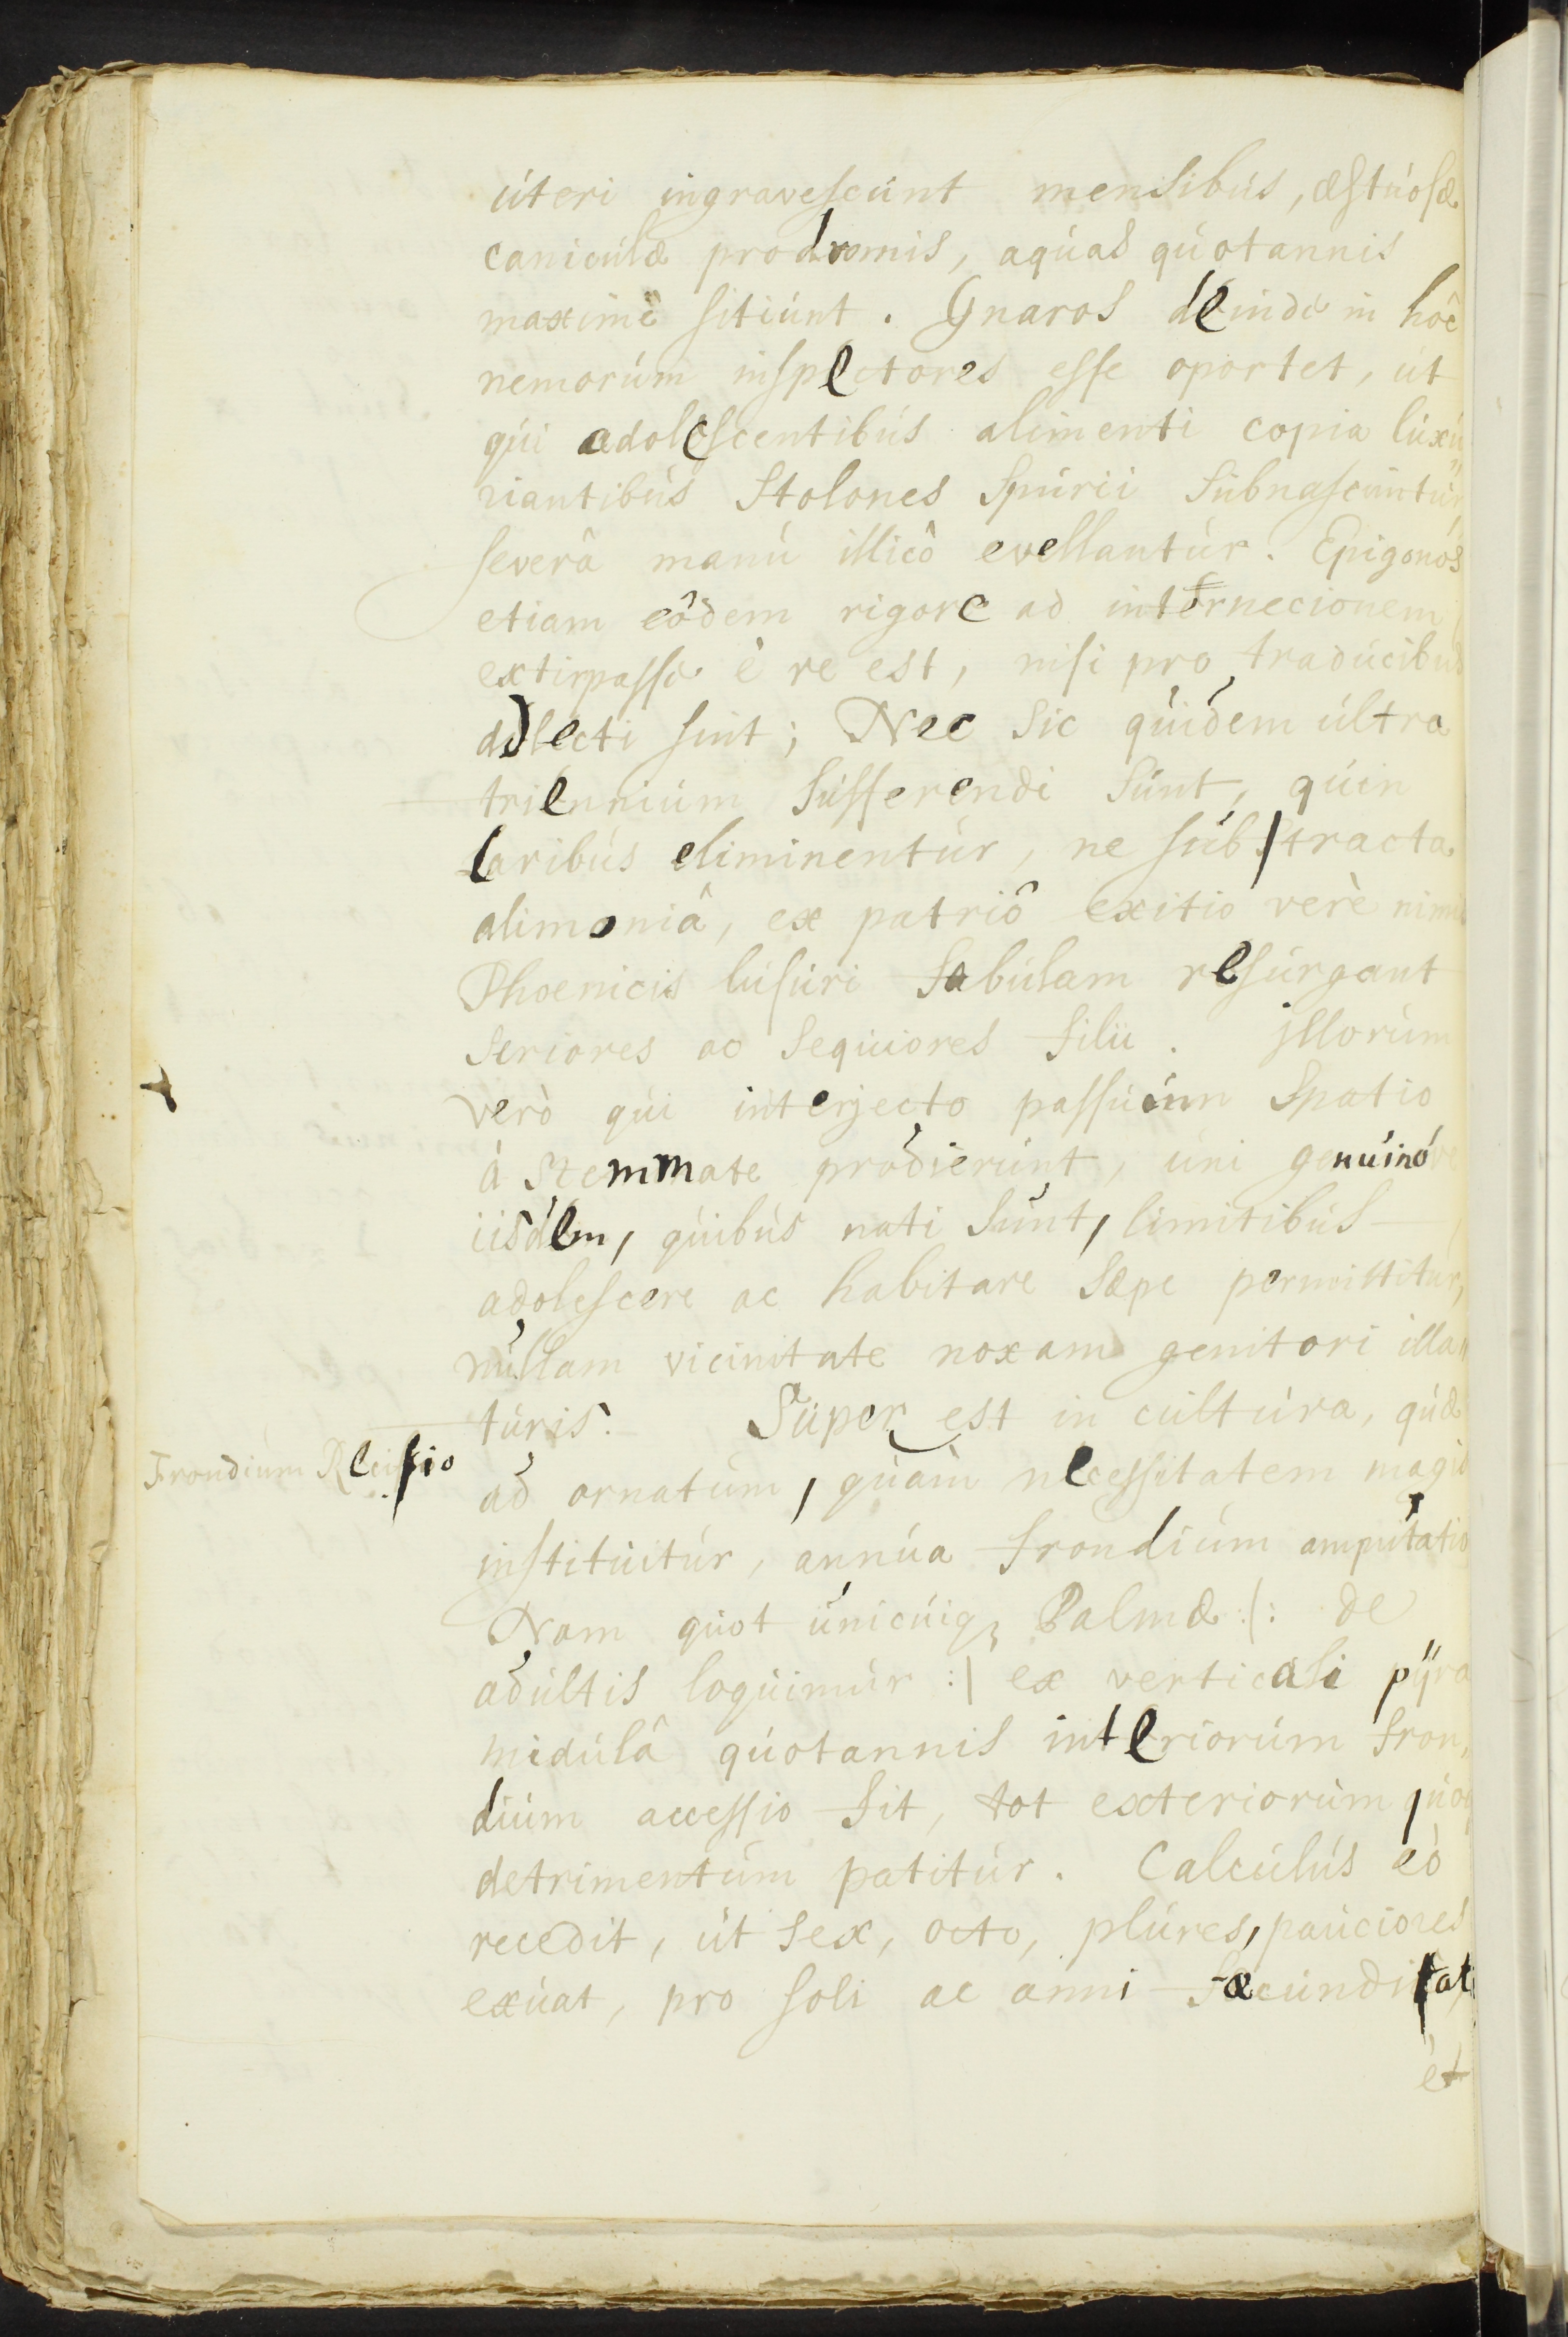 úteri ingravescúnt mensibús, æstúosæ
caniculæ prodromis, aqúas qúotannis
maximè sitiúnt. Gnaros deinde in hôc
nemorúm inspectores esse oportet, út
qúi adolescentibús alimenti copia lúxú„
riantibús Stolones Spúrii Súbnascúntúr,
severâ manú illicô evellantúr. Epigonos
etiam eôdem rigore ad internecionem
extirpasse è re est, nisi pro tradúcibús
adlecti sint; Nec sic qúidem últra
trienniúm súfferendi súnt, qúin
laribús eliminentúr, ne súbstracta
alimoniâ, ex patriô exitio verè
Phoenicis lúsúri fabúlam resúrgant
seriores ac seqúiores filii. jllorúm
verò qúi interjecto passúúm Spatio
á stemmate prodierúnt, úni
iisdem, qúibús nati súnt, limitibús
adolescere ac habitare sæpe permittitúr,
núllam vicinitate noxam genitori illa„
túris. Súper est in cúltúra, qúæ
Frondiúm Recisio
ad ornatúm, qúam necessitatem magis
institúitúr, annúa frondiúm ampútatio
Nam qúot únicúiq₃ Palmæ :(: de
adúltis loqúimúr :) ex verticali pÿra
midúlâ qúotannis interiorúm fron„
diúm accessio fit, tot exteriorúm
detrimentúm patitúr. Calcúlús eò
recedit, út sex, octo, plúres, paúciores
exúat, pro soli ac anni fæcúnditate
et